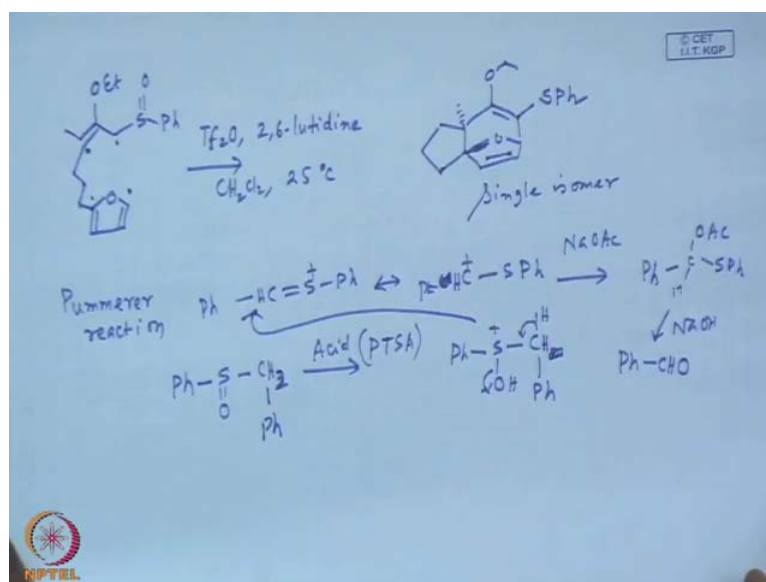 © CET
I.I.T. KGP
OEt O
S-Ph
O
Tf₂O, 2,6-lutidine
CH₂Cl₂, 25 °C
O
SPh
O
Single isomer
Pummerer
reaction
Ph-HC=S⁺-Ph ↔ HC⁺-SPh
NaOAc
OAc
Ph-C-SPh
H
NaOH
Ph-CHO
Ph-S-CH₂
O
Ph
Acid (PTSA)
H
Ph-S⁺-CH
OH
Ph
NPTEL